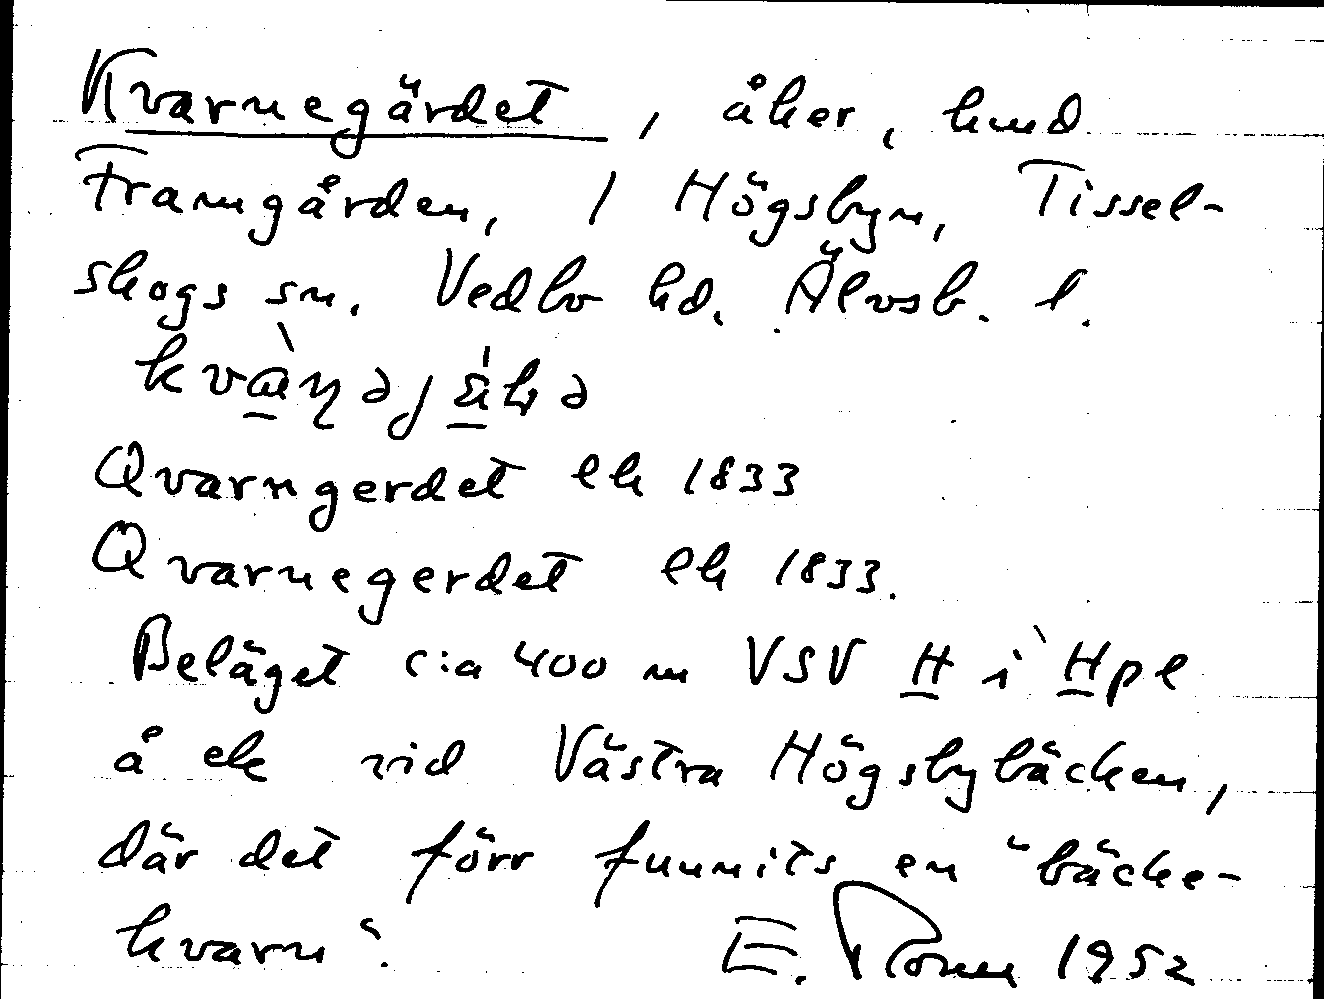 Kvarnegärdet, åker, hmd
Framgården, 1 Högsbyn, Tissel-
skogs sn. Vedbo hd. Älvsb. l.
Qvarngerdet lh 1833
Qvarnegerdet lh 1833.
Beläget c:a 400 m VSV H i Hpl
å ek vid Västra Högsbybäcken,
där det förr funnits en "bäcke-
kvarn". E. 1952